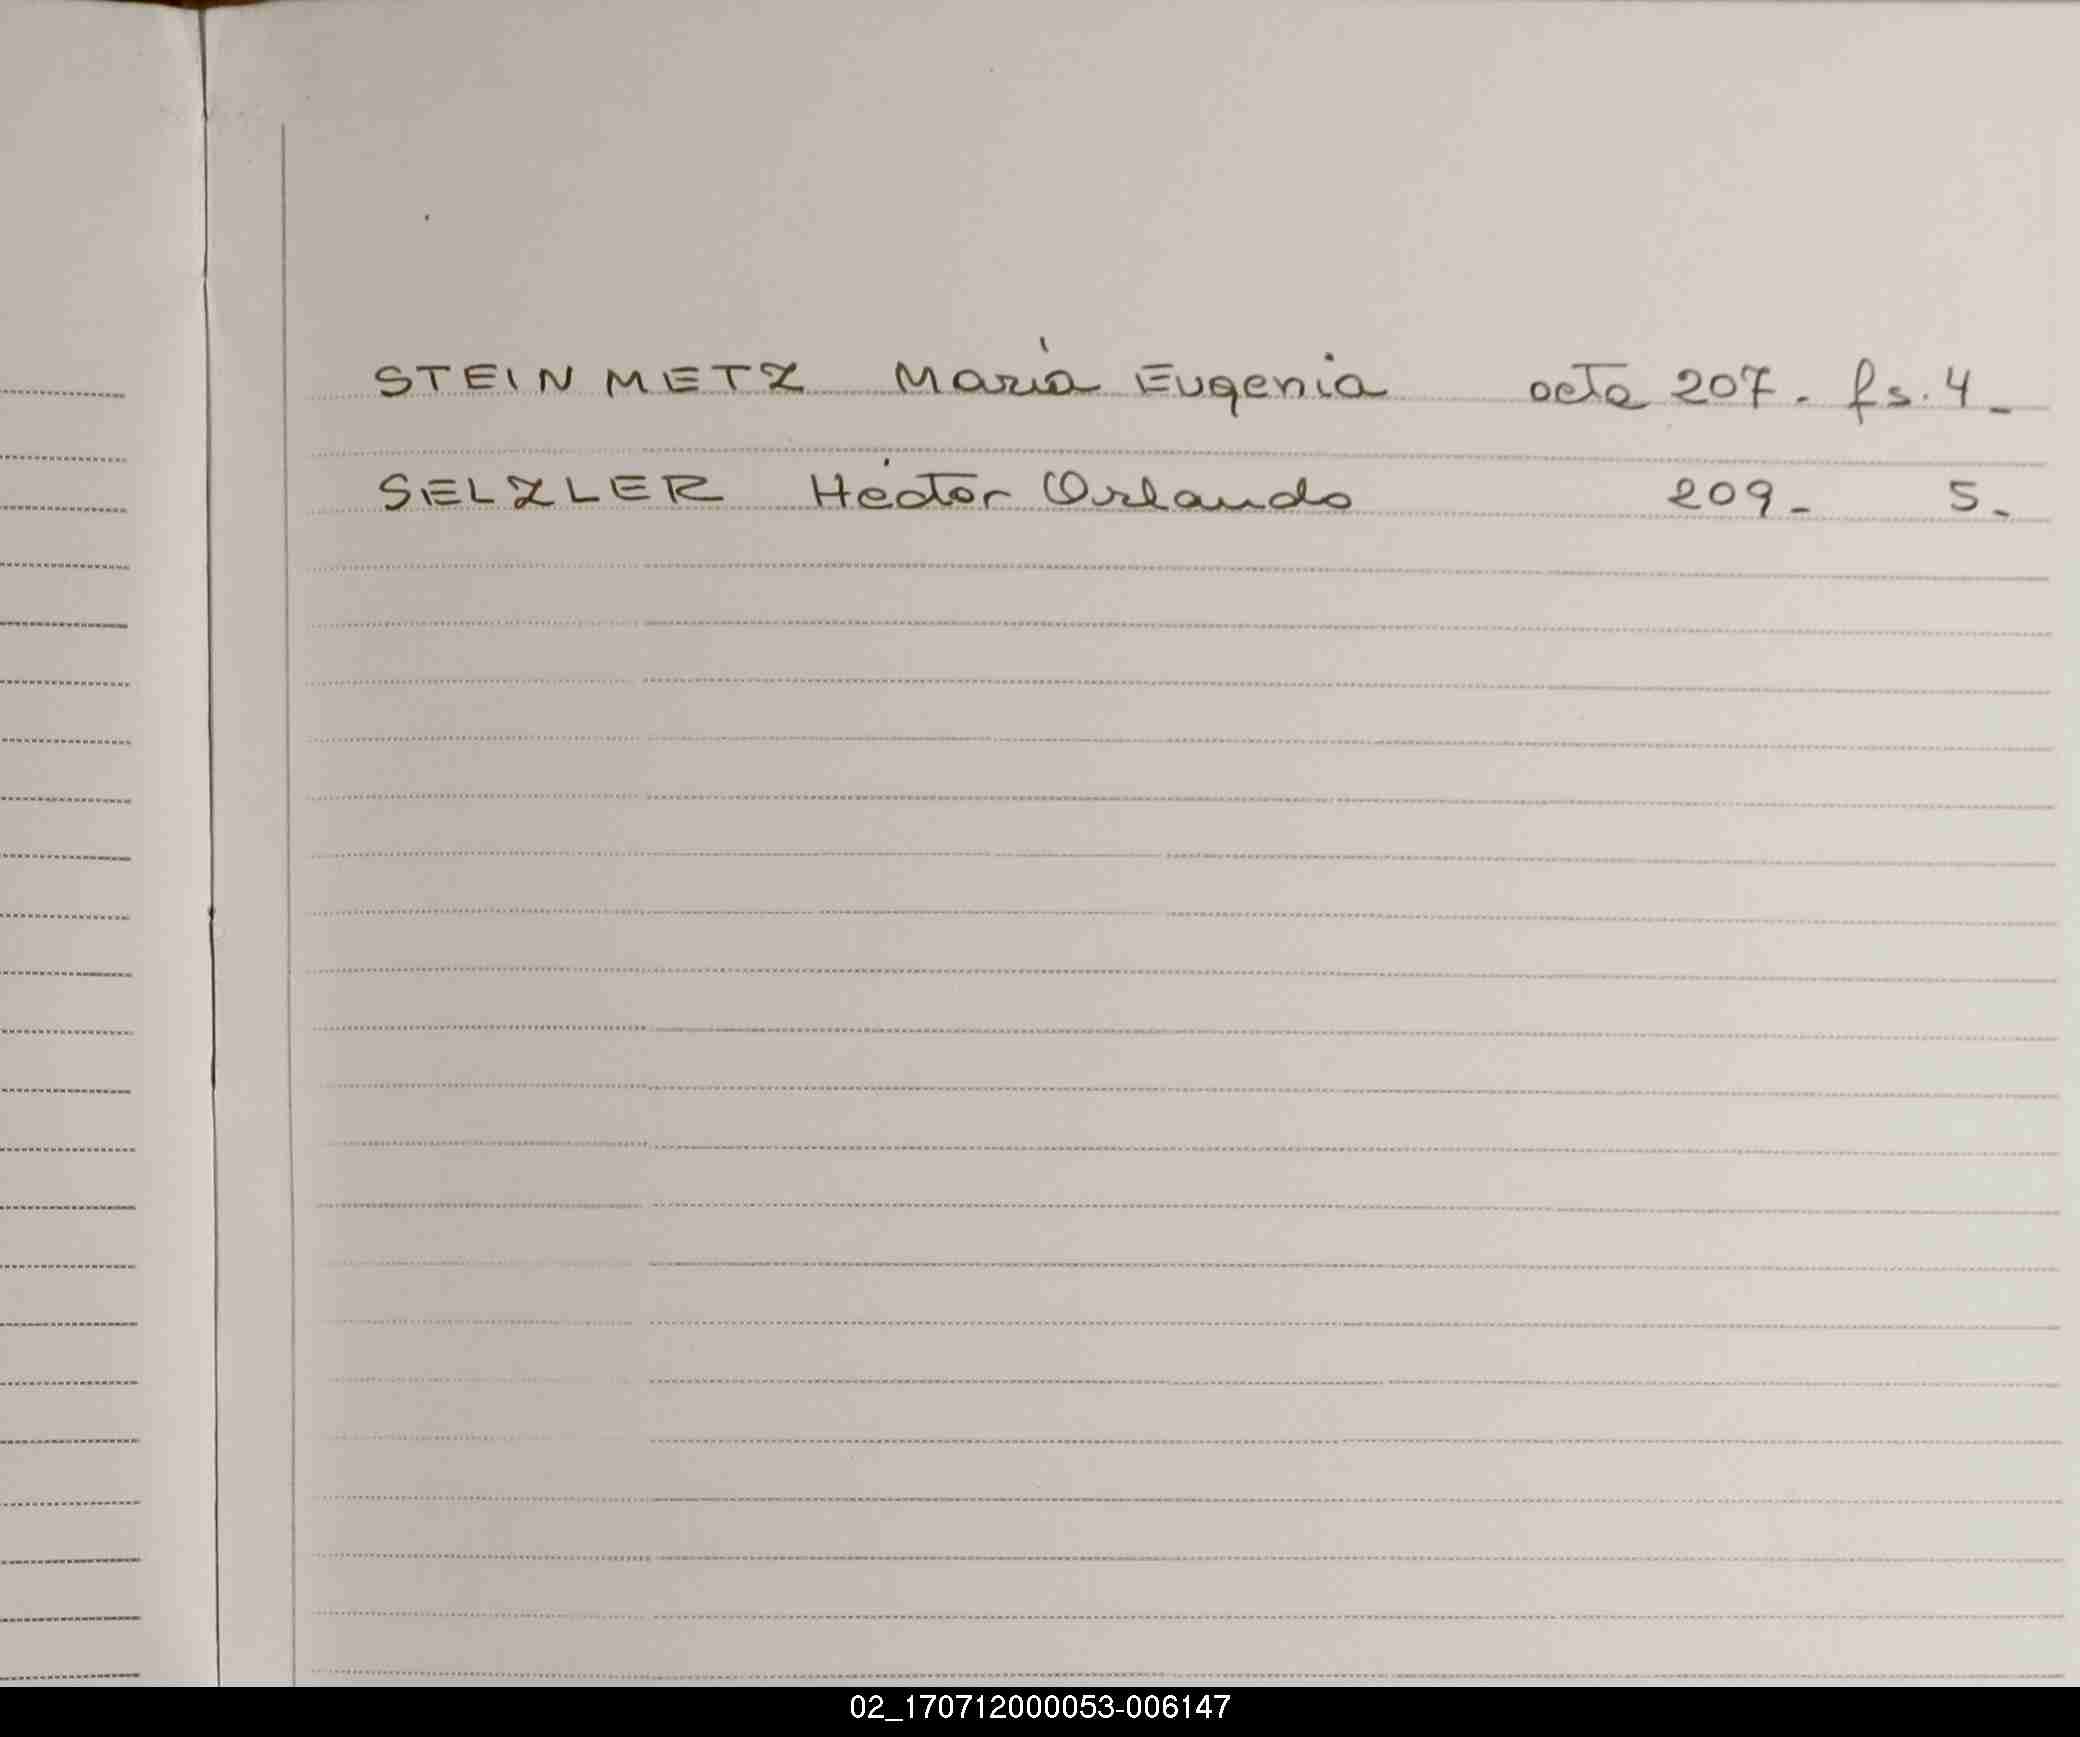 STEINMETZ María Eugenia acta 207. fs. 4_
SELZLER Héctor Orlando 209_ 5_
02_170712000053-006147